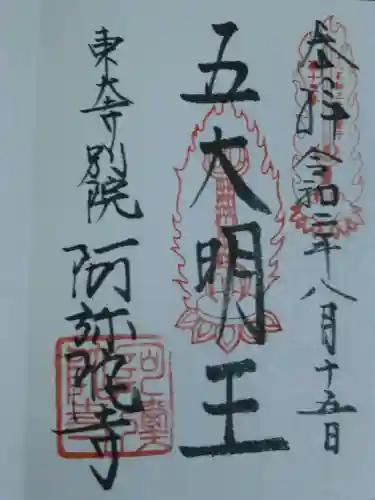 奉拝 令和二年八月十五日
五大明王
東大寺別院
阿弥陀寺